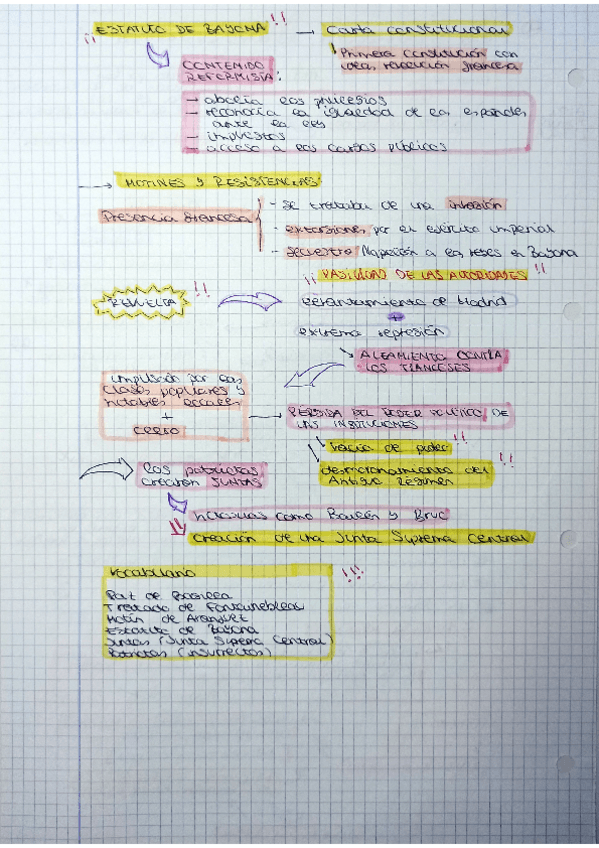 ¡¡ ESTATUTO DE BAYONA !! → Carta constitucional
Primera constitución con
ideas revolución francesa
CONTENIDO
REFORMISTA:
- abolía los privilegios
- reconocía la igualdad de los españoles
ante la ley
- impuestos
- acceso a los cargos públicos
→ MOTINES y RESISTENCIAS:
Presencia francesa
- Se trataba de una invasión
- extorsiones por el ejército imperial
- secuestro Napoleón a los reyes en Bayona
¡¡ PASIVIDAD DE LAS AUTORIDADES !!
REVUELTA !!
levantamiento de Madrid
+
extrema represión
ALZAMIENTO CONTRA
LOS FRANCESES
impulsado por las
clases populares y
notables locales
+
clero
→ PÉRDIDA DEL PODER POLÍTICO DE
LAS INSTITUCIONES
Vacío de poder !!
desmoronamiento del !!
Antiguo Régimen
los patriotas
crearon JUNTAS
victorias como Bailén y Bruc
!! creación de una Junta Suprema Central
Vocabulario !!!
Paz de Basilea
Tratado de Fontainebleau
Motín de Aranjuez
Estatuto de Bayona
Juntas (Junta Suprema Central)
Patriotas (insurrectos)